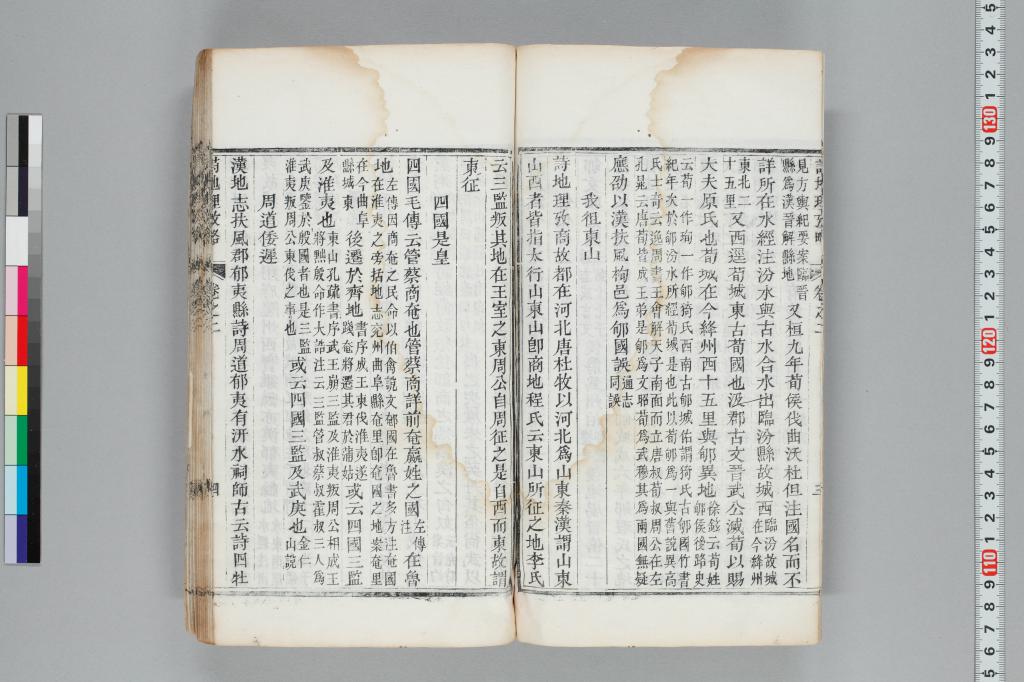 詩地理攷略 卷之二 三
見方輿紀要案臨晉
縣爲漢晉解縣地
又桓九年荀侯伐曲沃杜但注國名而不
詳所在水經注汾水與古水合水出臨汾縣故城西臨汾故城
在今絳州
東北二
十五里又西逕荀城東古荀國也汲郡古文晉武公滅荀以賜
大夫原氏也荀城在今絳州西十五里與郇異地徐鉉云荀姓
郇侯後路史
云荀一作珣一作郇猗氏西南古郇城佑謂猗氏古郇國竹書
紀年次於郇汾水所經荀城是也此以荀郇爲一與舊說異高
氏士奇云逸周書王會解天子南面而立唐叔荀叔周公在左
孔晁云唐荀皆成王弟是郇爲文昭荀爲武穆其爲兩國無疑
應劭以漢扶風栒邑爲郇國誤通志
同誤
我徂東山
詩地理攷商故都在河北唐杜牧以河北爲山東秦漢謂山東
山西者皆指太行山東山卽商地程氏云東山所征之地李氏
云三監叛其地在王室之東周公自周征之是自西而東故謂
東征
四國是皇
四國毛傳云管蔡商奄也管蔡商詳前奄嬴姓之國左傳
注
在魯
地左傳因商奄之民命以伯禽說文䣍國在魯書多方注奄國
在淮夷之旁括地志兗州曲阜縣奄里卽奄國之地案奄里
在今曲阜
縣城東後遷於齊地書序成王東伐淮夷遂
踐奄將遷其君於蒲姑或云四國三監
及淮夷也東山孔疏書序武王崩三監及淮夷叛周公相成王
將黜殷命作大誥注云三監管叔蔡叔霍叔三人爲
武庚監於殷國者也是三監
淮夷叛周公東伐之事也或云四國三監及武庚也金仁
山說
周道倭遲
漢地志扶風郡郁夷縣詩周道郁夷有汧水祠師古云詩四牡
詩地理攷略 卷之二 四